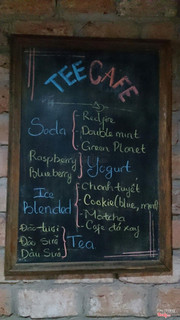 TEE CAFE
Soda
Redfire
Double mint
Green Planet
Raspberry
Blueberry
Yogurt
Ice
Blended
Chanh tuyết
Cookie (blue, mint)
Matcha
Cafe đá xay
Đào tươi
Đào Sữa
Dâu Sữa
Tea